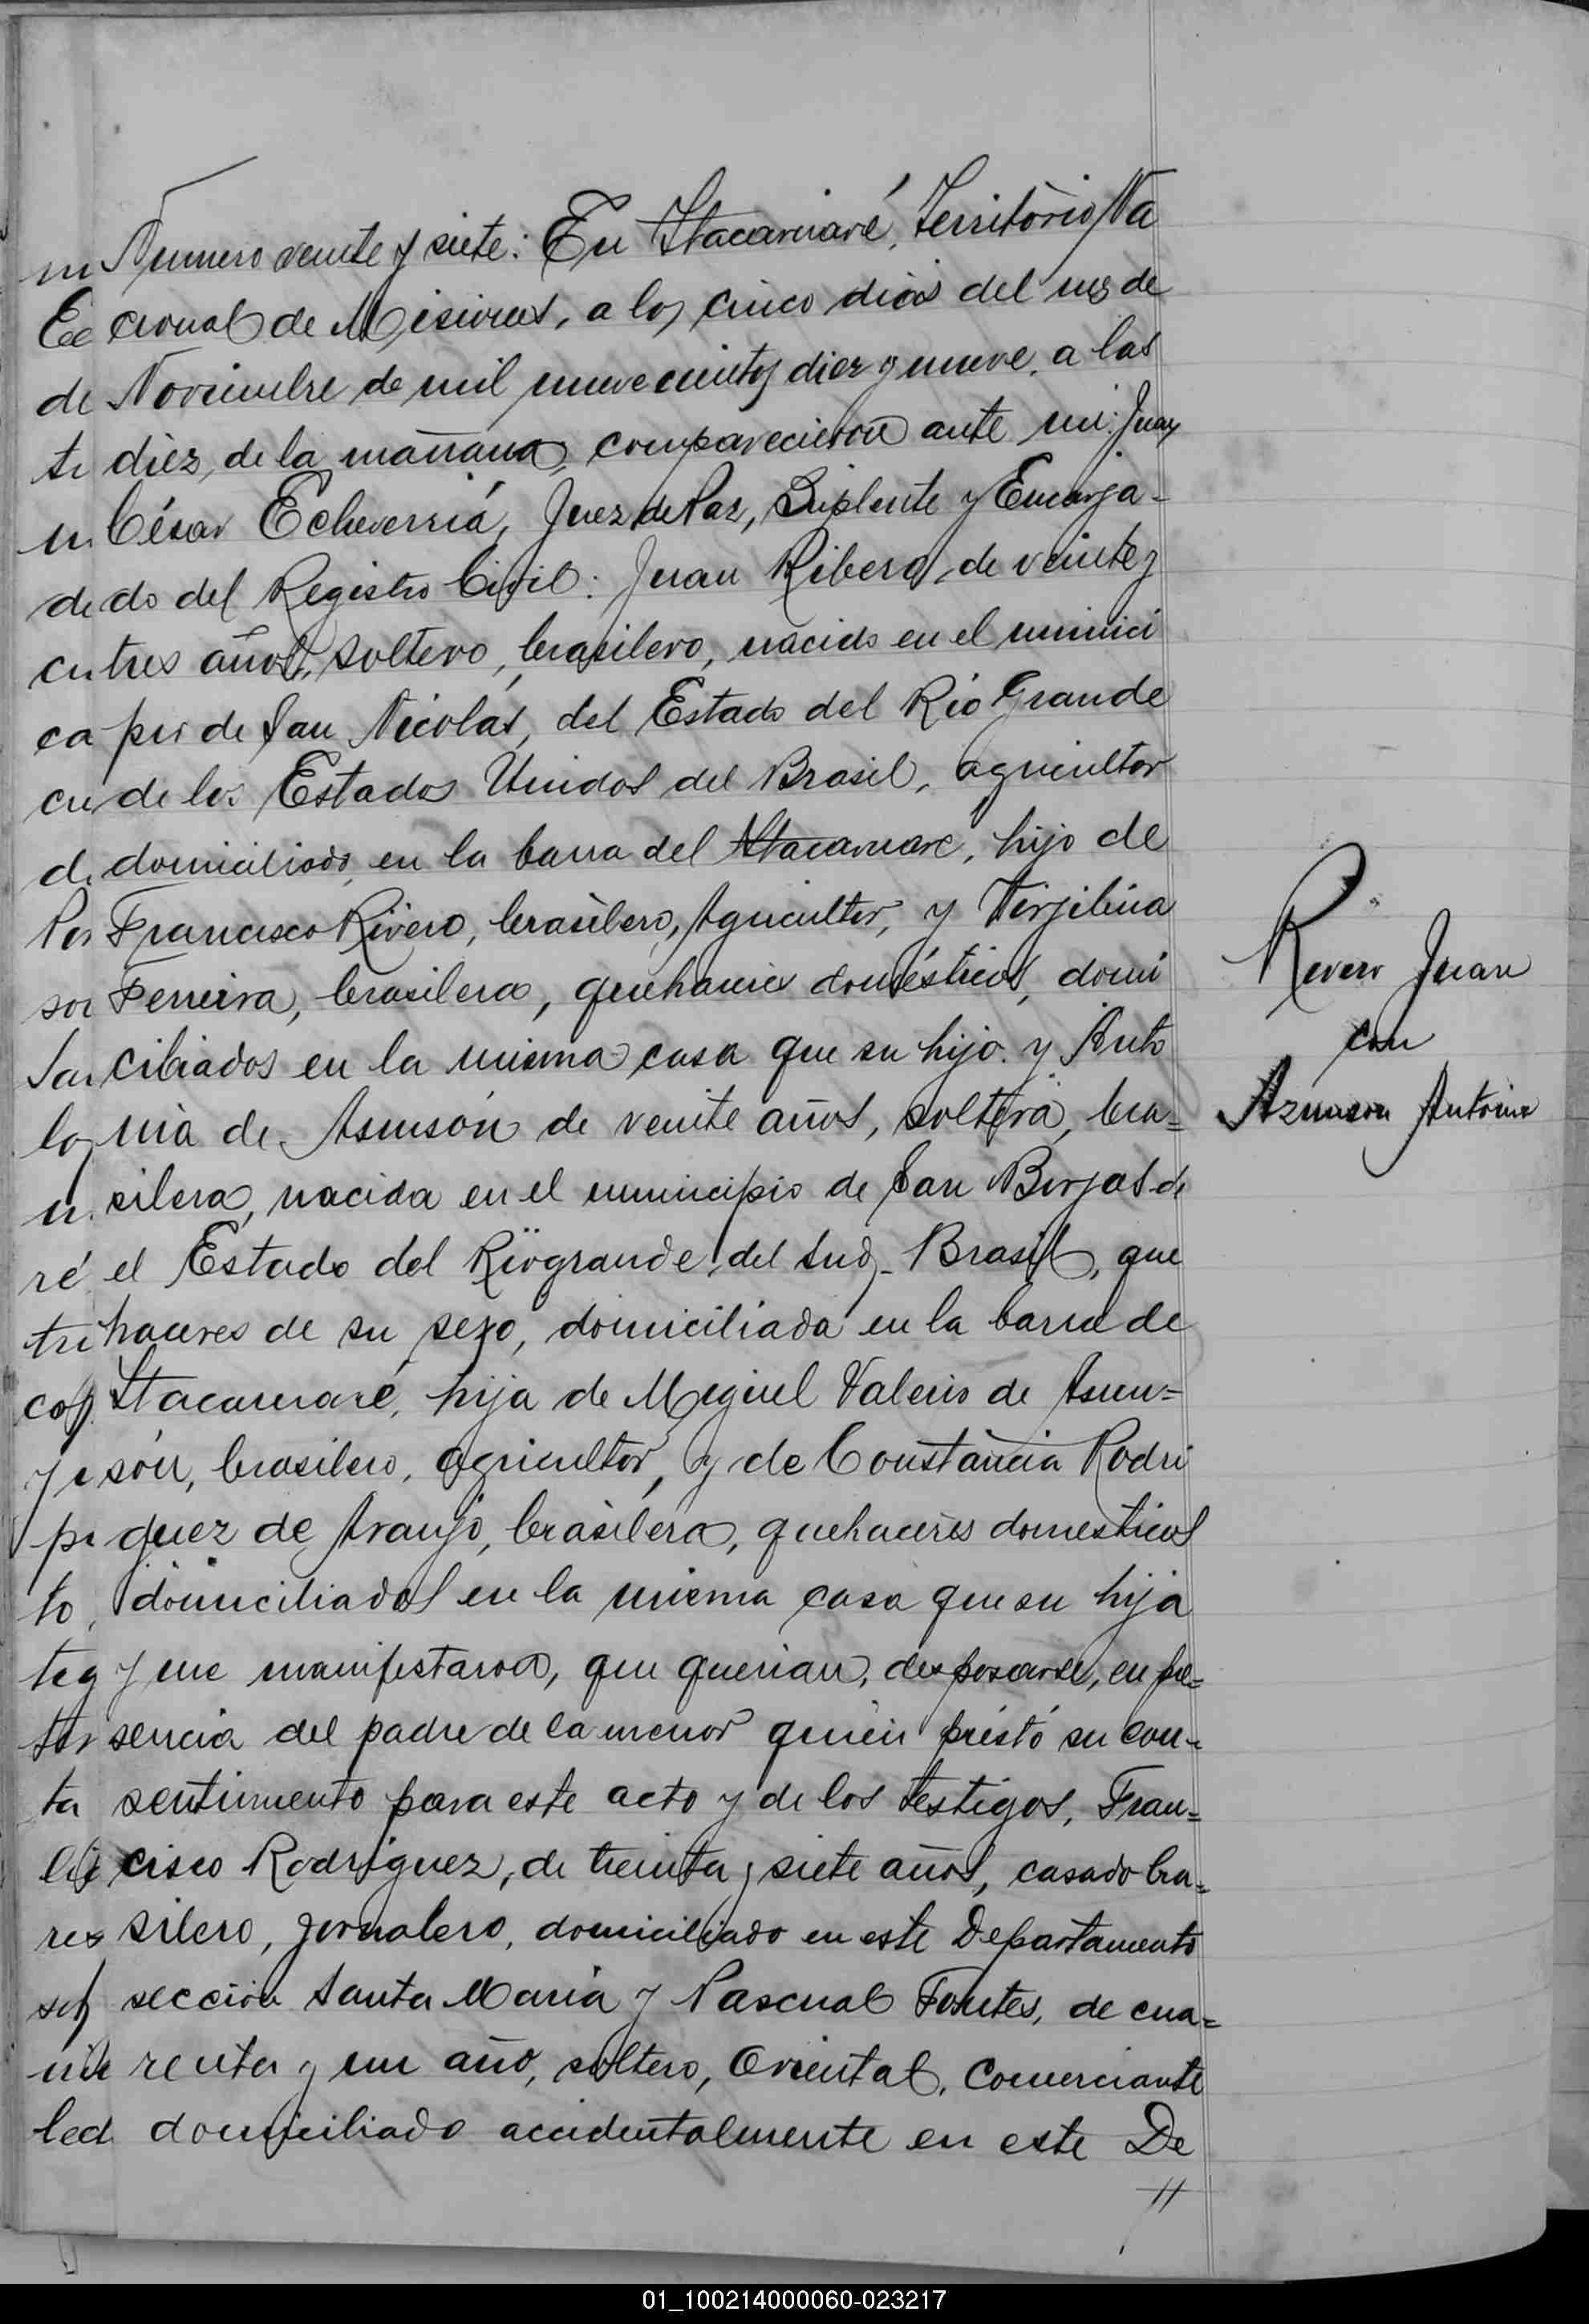 Numero veinte y siete: En Itacaruaré, Territorio Na
cional de Misiones, a los cinco dias del mes de
Noviembre de mil nuevecientos diez y nueve, a las
diez, de la mañana, comparecieron ante mi: Juan
César Echeverriá, Juez de Paz, Suplente y Encarga-
do del Registro Civil: Juan Ribero, de veinte y
tres años, soltero, brasilero, nacido en el munici
pio de San Nicolás, del Estado del Rio Grande
de los Estados Unidos del Brasil, agricultor
domiciliado, en la barra del Itacaruare, hijo de
Francisco Rivero, brasilero, Agricultor, y Virjilina
Ferreira, brasilera, quehaceres domésticos, domi
ciliados en la misma casa que su hijo. y Anto
nia de Asunsón de veinte años, soltera, bra=
silera, nacida en el municipio de San Borjas de
el Estado del Riogrande, del Sud, Brasil, que
haceres de su sexo, domiciliada en la barra de
Itacaruaré, hija de Miguel Valerio de Asun=
són, brasilero, agricultor, y de Constancia Rodri
guez de Araujo, brasilera, quehaceres domesticos
domiciliados en la misma casa que su hija
y me manifestaron, que querian, desposarse, en pre=
sencia del padre de la menor quien prestó su con-
sentimiento para este acto y de los testigos, Fran=
cisco Rodriguez, de treinta y siete años, casado bra=
silero, jornalero, domiciliado en este Departamento
sección Santa Maria y Pascual Fontes, de cua=
renta y un año, soltero, Oriental, Comerciante
domiciliado accidentalmente en este De
//
Rivero Juan
con
Azunson Antonia
01_100214000060-023217